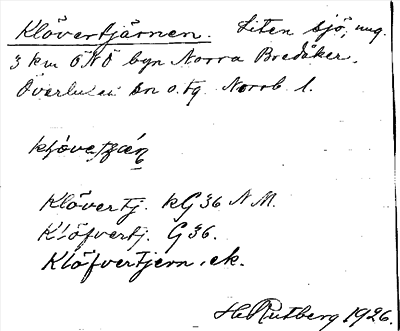 Klövertjärnen. Liten sjö, ung.
3 km ÖNÖ byn Norra Bredåker,
Överluleå sn o. tg Norrb. l.
Klövertj. kG 36 N M.
Klöfvertj. G 36.
Klöfvertjern, ek.
H. Rutberg 1926.